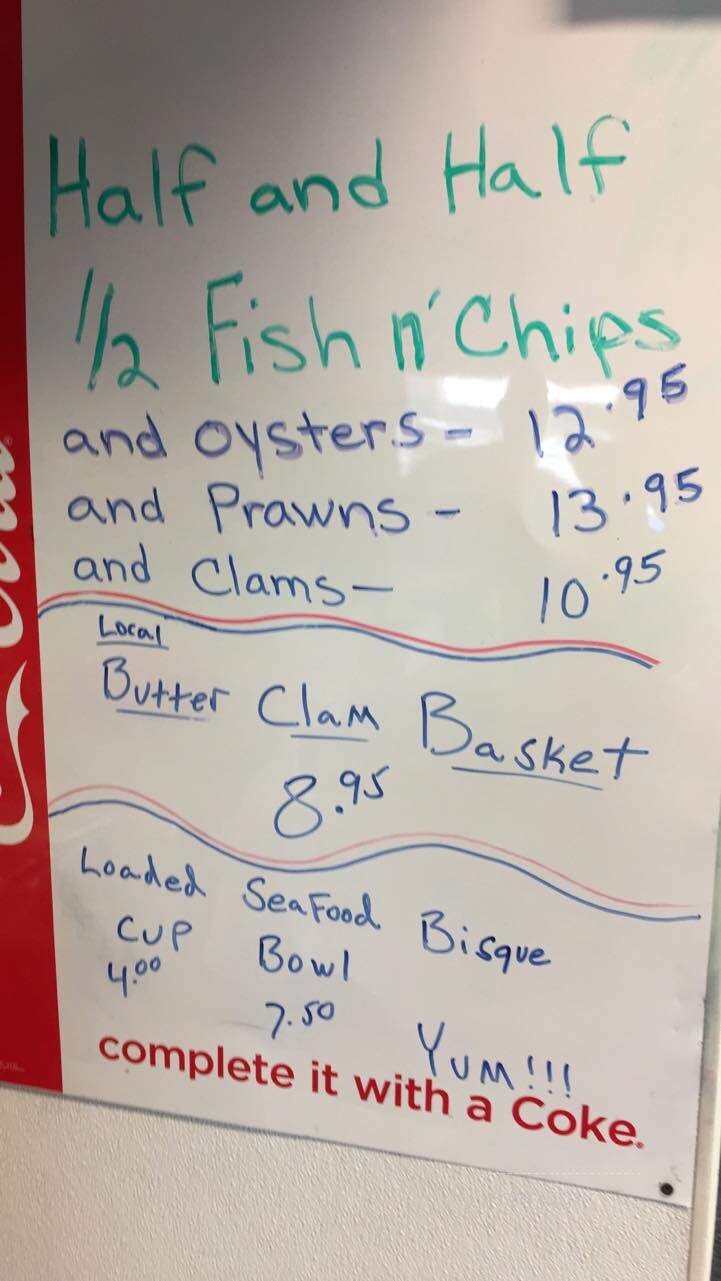 Half and Half
1/2 Fish n' Chips
and oysters - 12.95
and Prawns - 13.95
and Clams - 10.95
Local
Butter Clam Basket
8.95
Loaded SeaFood Bisque
CUP Bowl
4.00 7.50
YUM!!!
complete it with a Coke.